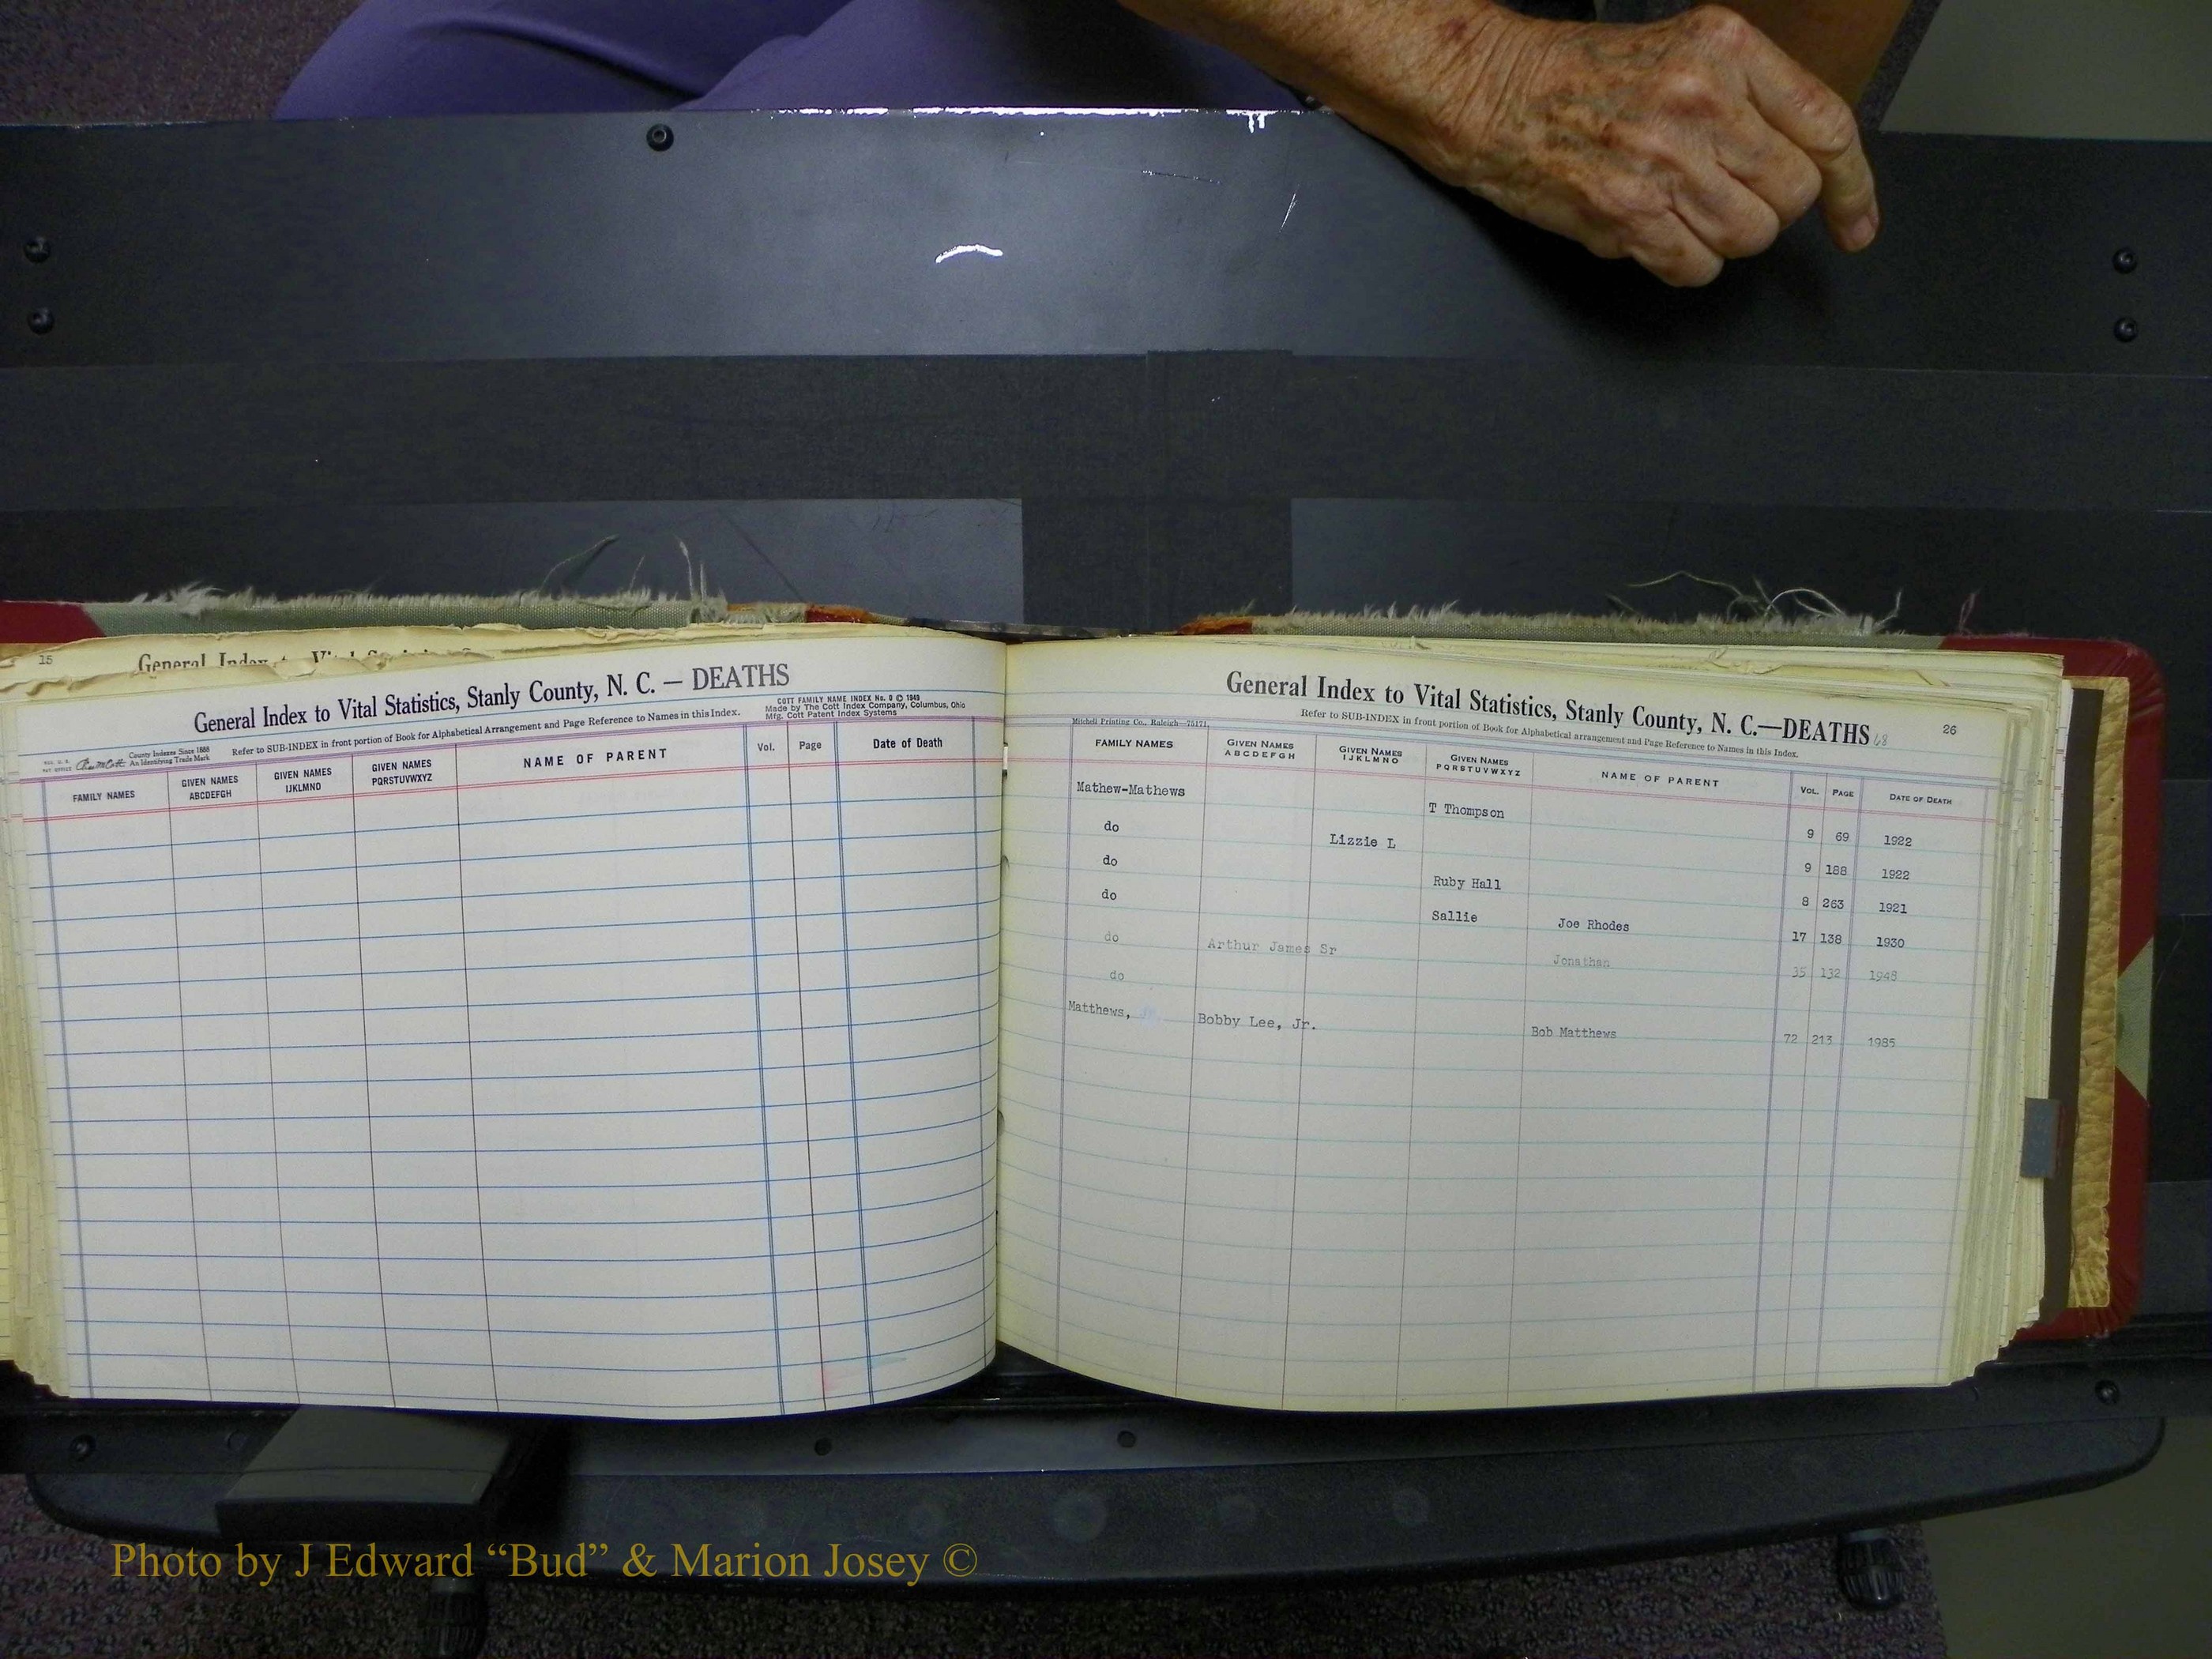 15
General Index to Vital Statistics
General Index to Vital Statistics, Stanly County, N. C. — DEATHS
COTT FAMILY NAME INDEX No. 9 © 1949
Made by The Cott Index Company, Columbus, Ohio
Mfg. Cott Patent Index Systems
County Indexes Since 1888
An Identifying Trade Mark
Refer to SUB-INDEX in front portion of Book for Alphabetical Arrangement and Page Reference to Names in this Index.
FAMILY NAMES GIVEN NAMES ABCDEFGH GIVEN NAMES IJKLMNO GIVEN NAMES PQRSTUVWXYZ NAME OF PARENT Vol. Page Date of Death
General Index to Vital Statistics, Stanly County, N. C.—DEATHS 68
26
Mitchell Printing Co., Raleigh—75171.
Refer to SUB-INDEX in front portion of Book for Alphabetical arrangement and Page Reference to Names in this Index.
FAMILY NAMES GIVEN NAMES ABCDEFGH GIVEN NAMES IJKLMNO GIVEN NAMES PQRSTUVWXYZ NAME OF PARENT VOL. PAGE DATE OF DEATH
Mathew-Mathews T Thompson 9 69 1922
do Lizzie L 9 188 1922
do Ruby Hall 8 263 1921
do Sallie Joe Rhodes 17 138 1930
do Arthur James Sr Jonathan 35 132 1948
do
Matthews, Bobby Lee, Jr. Bob Matthews 72 213 1985
Photo by J Edward “Bud” & Marion Josey ©